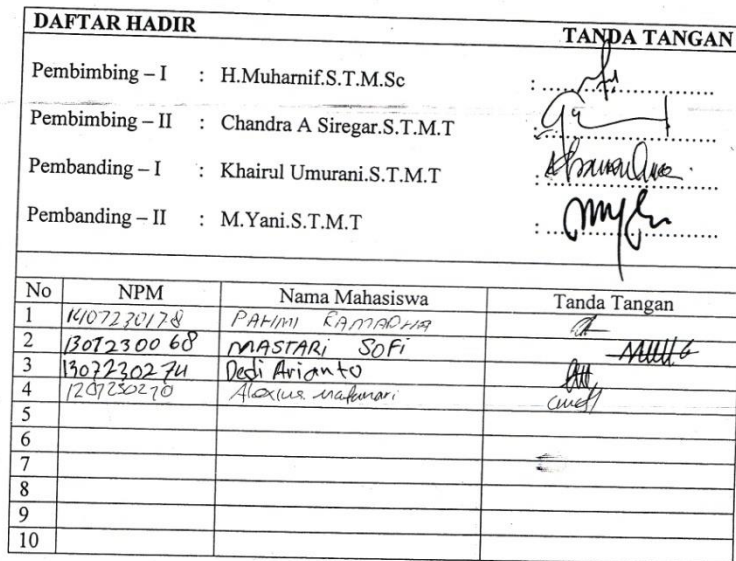 DAFTAR HADIR TANDA TANGAN
Pembimbing – I : H.Muharnif.S.T.M.Sc :
Pembimbing – II : Chandra A Siregar.S.T.M.T :
Pembanding – I : Khairul Umurani.S.T.M.T :
Pembanding – II : M.Yani.S.T.M.T :
No NPM Nama Mahasiswa Tanda Tangan
1 1407230178 PAHMI RAMADHA
2 1307230068 MASTARI SOFI
3 1307230274 Dedi Arianto
4 1207230270
5
6
7
8
9
10